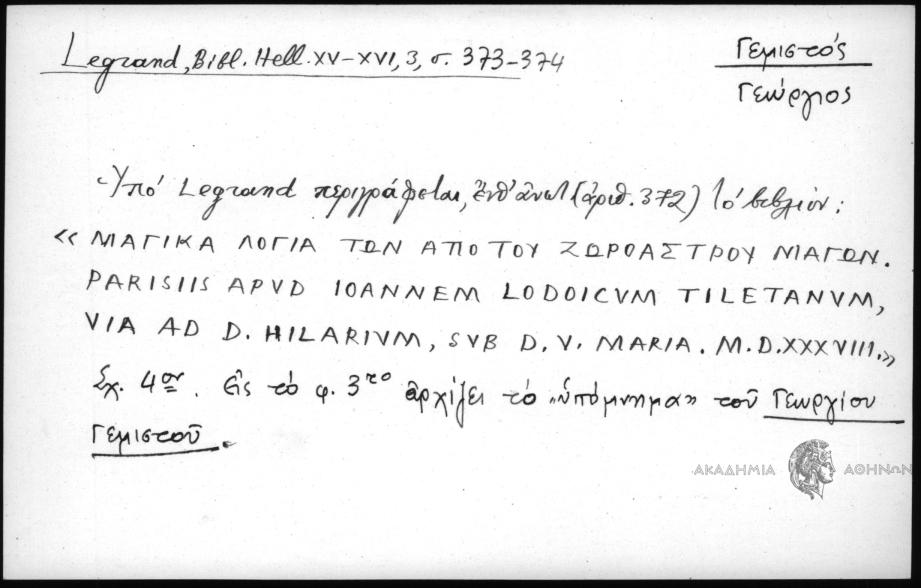 Legrand, Bibl. Hell. XV-XVI, 3, σ. 373-374
Γεμιστός
Γεώργιος
Ὑπό Legrand περιγράφεται, ἔνθ' ἀνωτ. (ἀριθ. 372) τό βιβλίον:
« ΜΑΓΙΚΑ ΛΟΓΙΑ ΤΩΝ ΑΠΟ ΤΟΥ ΖΩΡΟΑΣΤΡΟΥ ΜΑΓΩΝ.
PARISIIS APVD IOANNEM LODOICVM TILETANVM,
VIA AD D. HILARIVM, SVB D. V. MARIA. M.D.XXXVIII.»
Σχ. 4ον. Εἰς τό φ. 3το ἀρχίζει τό „ὑπόμνημα" τοῦ Γεωργίου
Γεμιστοῦ.
ΑΚΑΔΗΜΙΑ ΑΘΗΝΩΝ